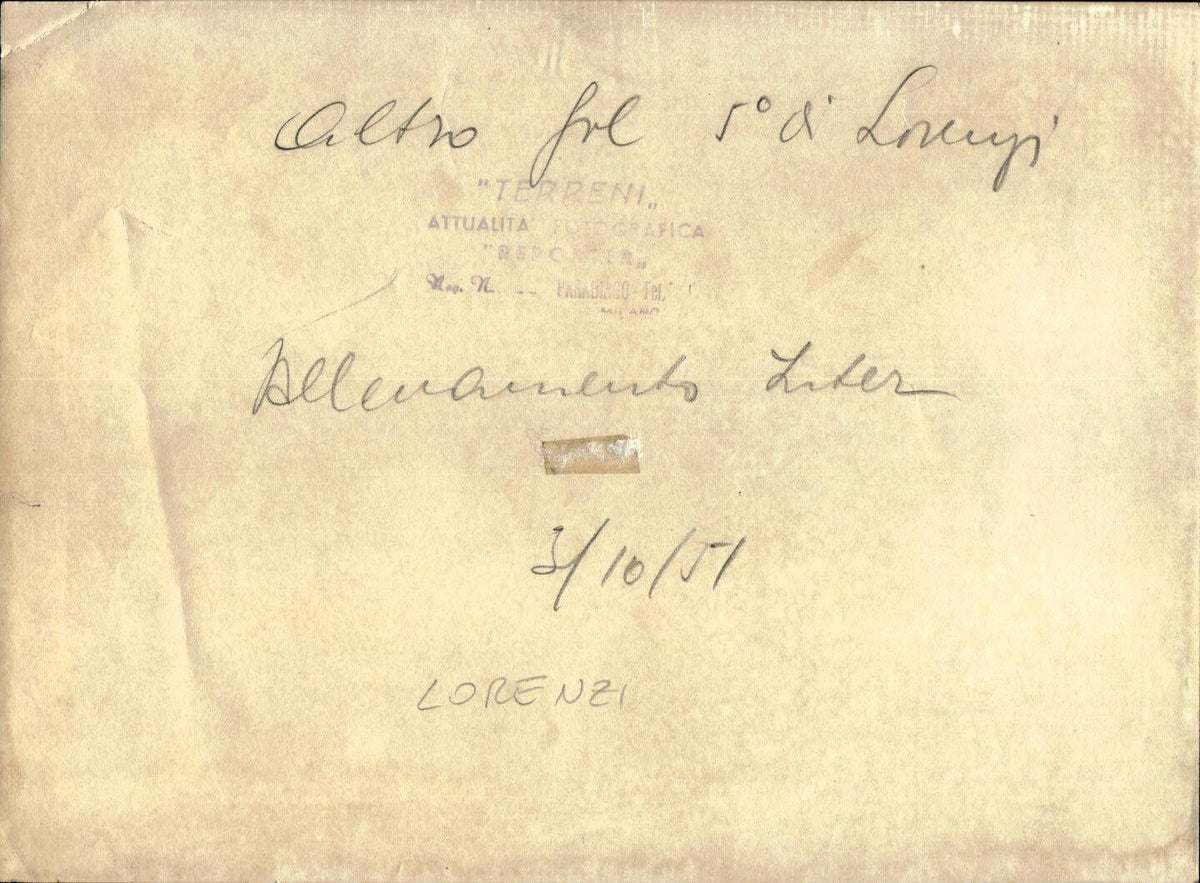 Altro gol 5° di Lorenzi
"TERRENI"
ATTUALITA' FOTOGRAFICA
"REPORTER"
PARABIAGO - Tel.
MILANO
Allenamento Inter
3/10/51
LORENZI